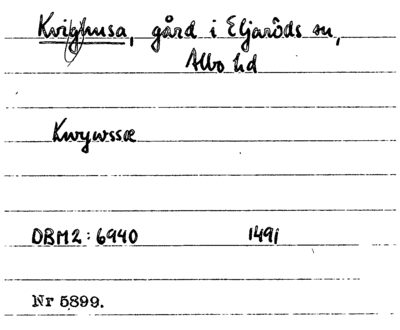 Kvighusa, gård i Eljaröds sn,
Albo hd
Kwywssæ
DBM2: 6940 1491
Nr 5899.